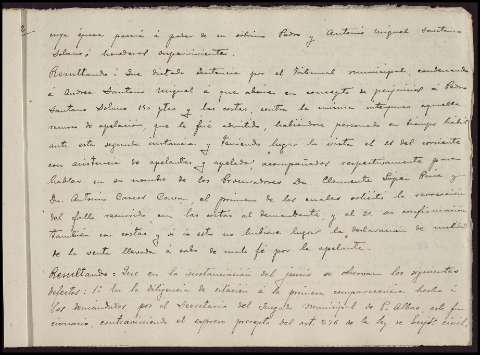 cuya época pasará á poder de su sobrino Pedro y Antonio Miguel Santana
Solano, herederos supervivientes.
Resultando: Que dictada sentencia por el Tribunal municipal, condenando
á Andrés Santano Miguel á que abone en concepto de perjuicios á Pedro
Santano Solano 150 ptas y las costas, contra la misma interpuso aquella
recurso de apelación, que le fué admitido, habiéndose personado en tiempo hábil
ante esta segunda instancia, y teniendo lugar la vista el 28 del corriente
con asistencia de apelantes y apelado, acompañados respectivamente para
hablar en su nombre de los Procuradores Dn Clemente López Ruiz y
Dn Antonio Cancer, el primero de los cuales solicitó la revocación
del fallo recurrido, con las costas al demandante, y el 2º su confirmación
también con costas y si á esto no hubiese lugar la declaración de nulidad
de la venta llevada á cabo de mala fé por la apelante.
Resultando: Que en la sustanciación del juicio se observan los siguientes
defectos: 1º En la diligencia de citación á la primera comparecencia hecha á
los demandados por el Secretario del Juzgado municipal de P. Albas, este fun
cionario, contraviniendo el expreso precepto del art. 276 de la ley de Enjt civil,